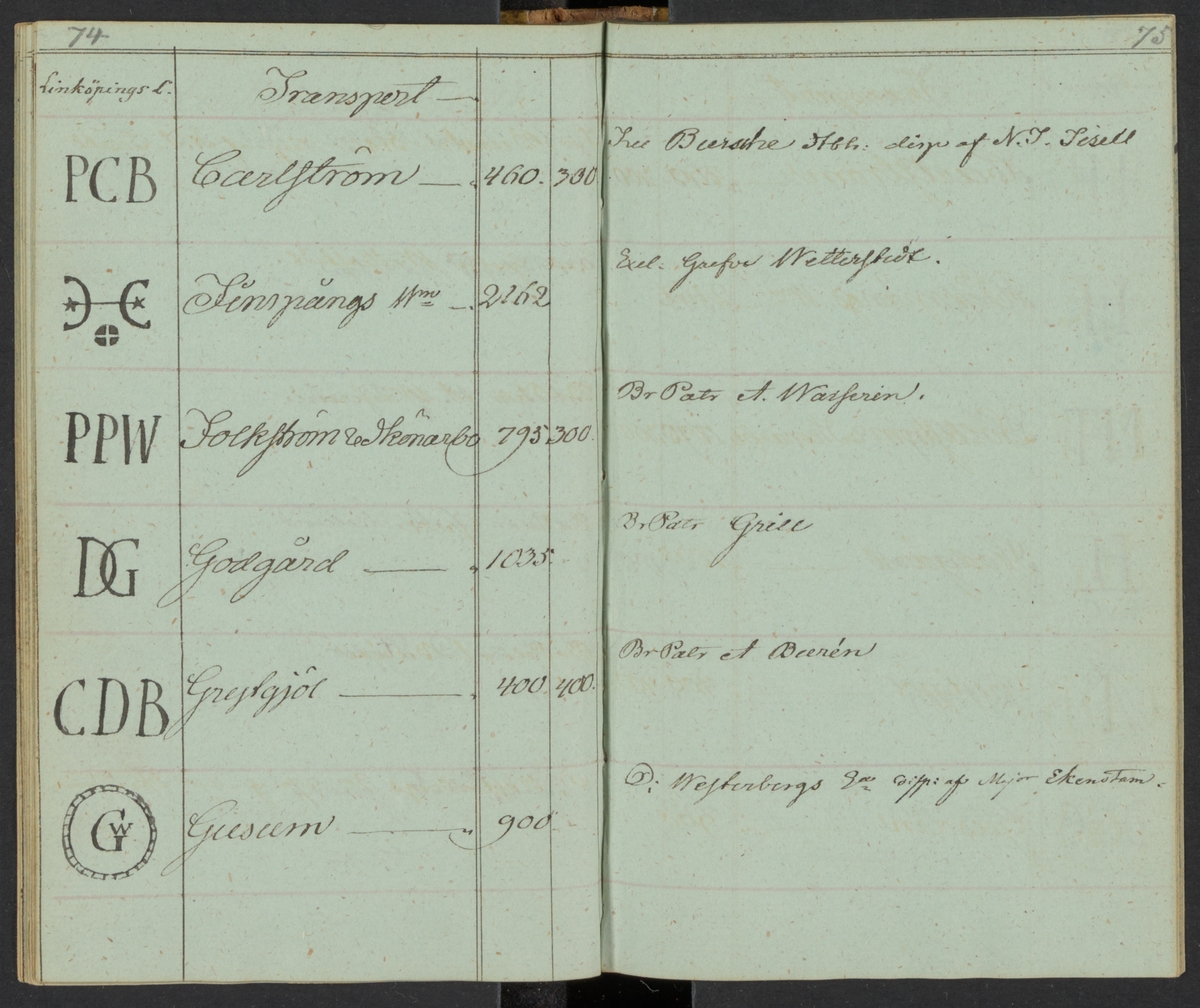 74
75
Linköpings L.
Transport
PCB Carlström 460. 300
Bursche disp af N. J. Tisell
Finspångs 2262
Exel. Grefve Wetterstedt.
PPW Folkström & Skönarbo 795 300.
Br Patr A. Wasserin.
DG Godgård 1035.
Br Patr Grill
CDB Grytgjöl 400. 400.
Br Patr A Burén
GW Gusum 900
D: Westerbergs disp: af Major Ekenstam.